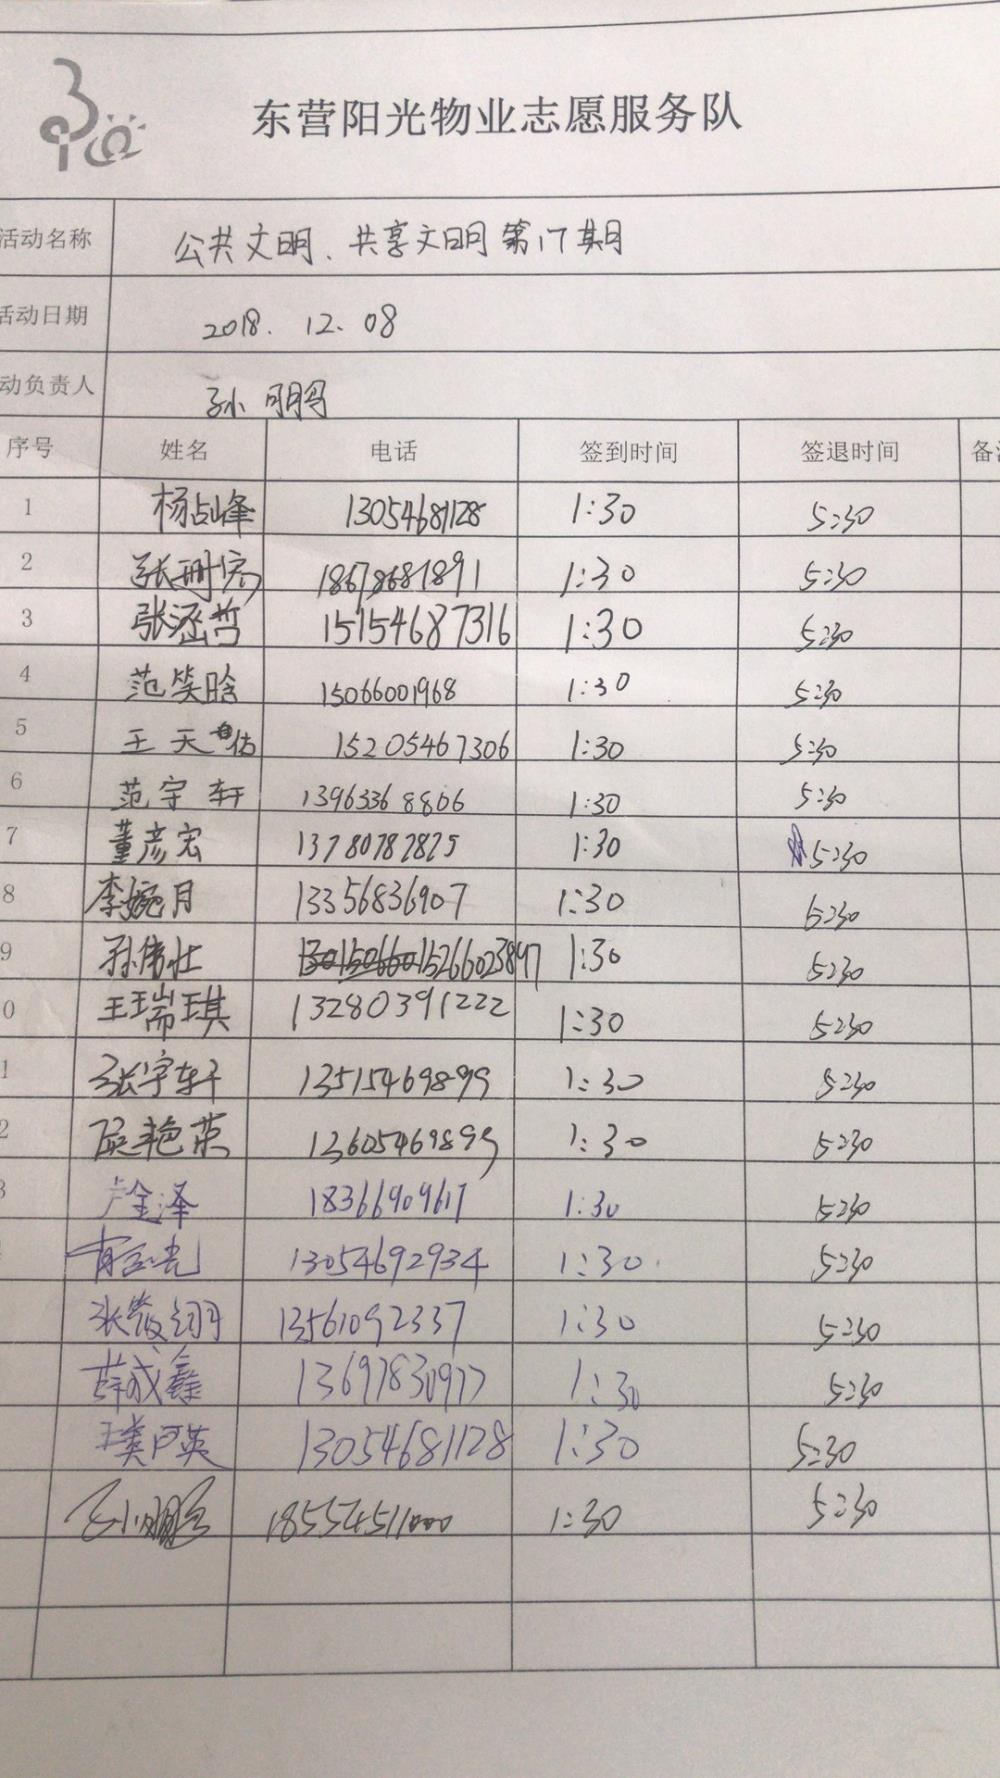 东营阳光物业志愿服务队
活动名称 公共文明、共享文明第17期
活动日期 2018.12.08
动负责人 孙明鹏
序号 姓名 电话 签到时间 签退时间 备注
1 杨占峰 13054681128 1:30 5:30
2 张珊 18678681891 1:30 5:30
3 张涵哲 15154687316 1:30 5:30
4 范笑晗 15066001968 1:30 5:30
5 王天 15205467306 1:30 5:30
6 范宇轩 13963368806 1:30 5:30
7 董彦宏 13780782825 1:30 5:30
8 李婉月 13356836907 1:30 5:30
9 孙伟壮 15266023847 1:30 5:30
0 王瑞琪 13280391222 1:30 5:30
1 张宇轩 13515469899 1:30 5:30
2 艳荣 13605469899 1:30 5:30
3 卢金泽 18366909617 1:30 5:30
13054692934 1:30 5:30
张 翊 13561092337 1:30 5:30
薛成鑫 13697830977 1:30 5:30
英 13054681128 1:30 5:30
孙明鹏 18554511000 1:30 5:30